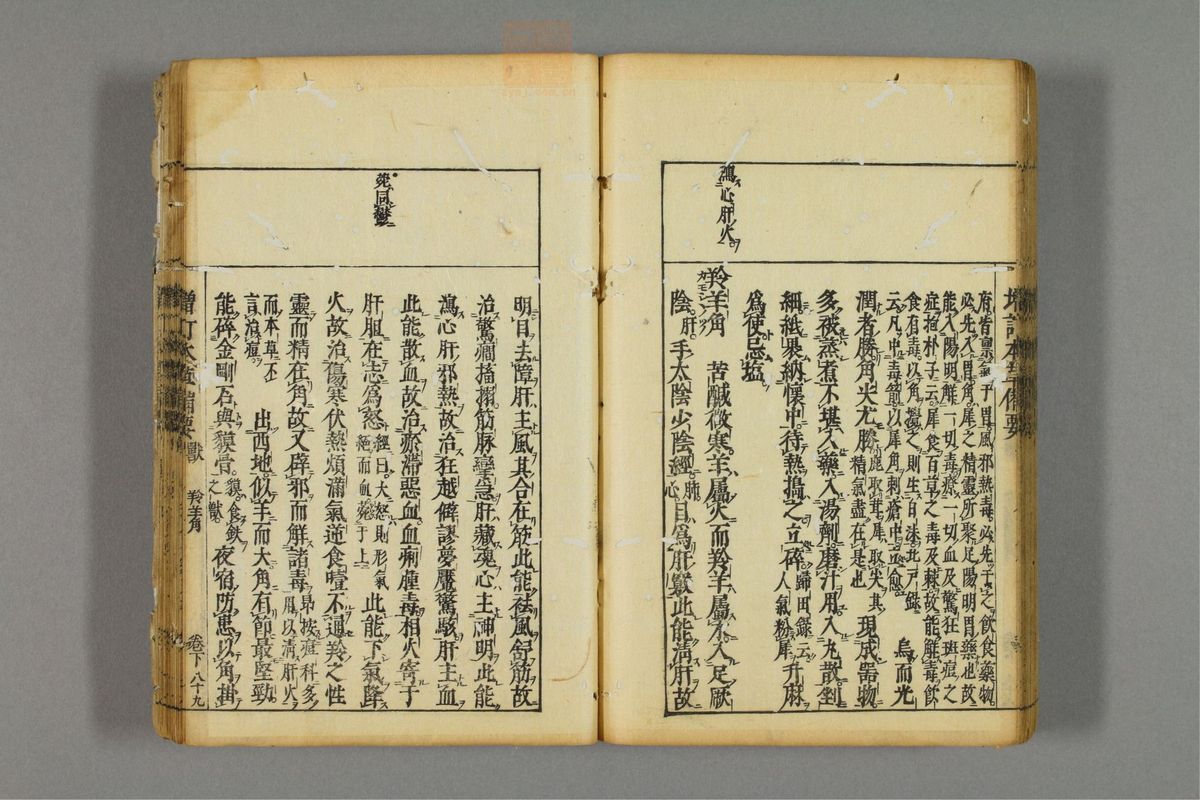 增訂本草備要
府皆稟氣于胃風邪熱毒必先干之飲食藥物
必先入胃角犀之精靈所聚足陽明胃藥也故
能入陽明解一切毒療一切血及驚狂斑痘之
症抱朴子云犀食百草之毒及棘故能解毒飲
食有毒以角攪之則生白沫北戸錄
云凡中毒箭以犀角刺瘡中立愈 烏而光
潤者勝角尖尤勝鹿取茸犀取尖其精氣盡在是也 現成器物
多被蒸煮不堪入藥入湯劑磨汁用入丸散剉
細紙裹納懷中待熱搗之立碎歸田錄云人氣粉犀 升麻
爲使忌塩
瀉心肝火
羚羊角 苦鹹微寒羊屬火而羚羊屬木入足厥
陰肝手太陰少陰經肺心目爲肝竅此能淸肝故
宛同鬱
明目去障肝主風其合在筋此能祛風舒筋故
治驚癇搐搦筋脉攣急肝藏魂心主神明此能
瀉心肝邪熱故治狂越僻謬夢魘驚駭肝主血
此能散血故治瘀滯惡血血痢腫毒相火寄于
肝膽在志爲怒經曰大怒則形氣絕而血菀于上 此能下氣降
火故治傷寒伏熱煩滿氣逆食噎不通羚之性
靈而精在角故又辟邪而解諸毒昂按痘科多用以淸肝火
而本草不言治痘 出西地似羊而大角有節最堅勁
能碎金剛石與貘骨貘食鉄之獸 夜宿防患以角掛
增訂本草備要 獸 羚羊角 卷下 八十九